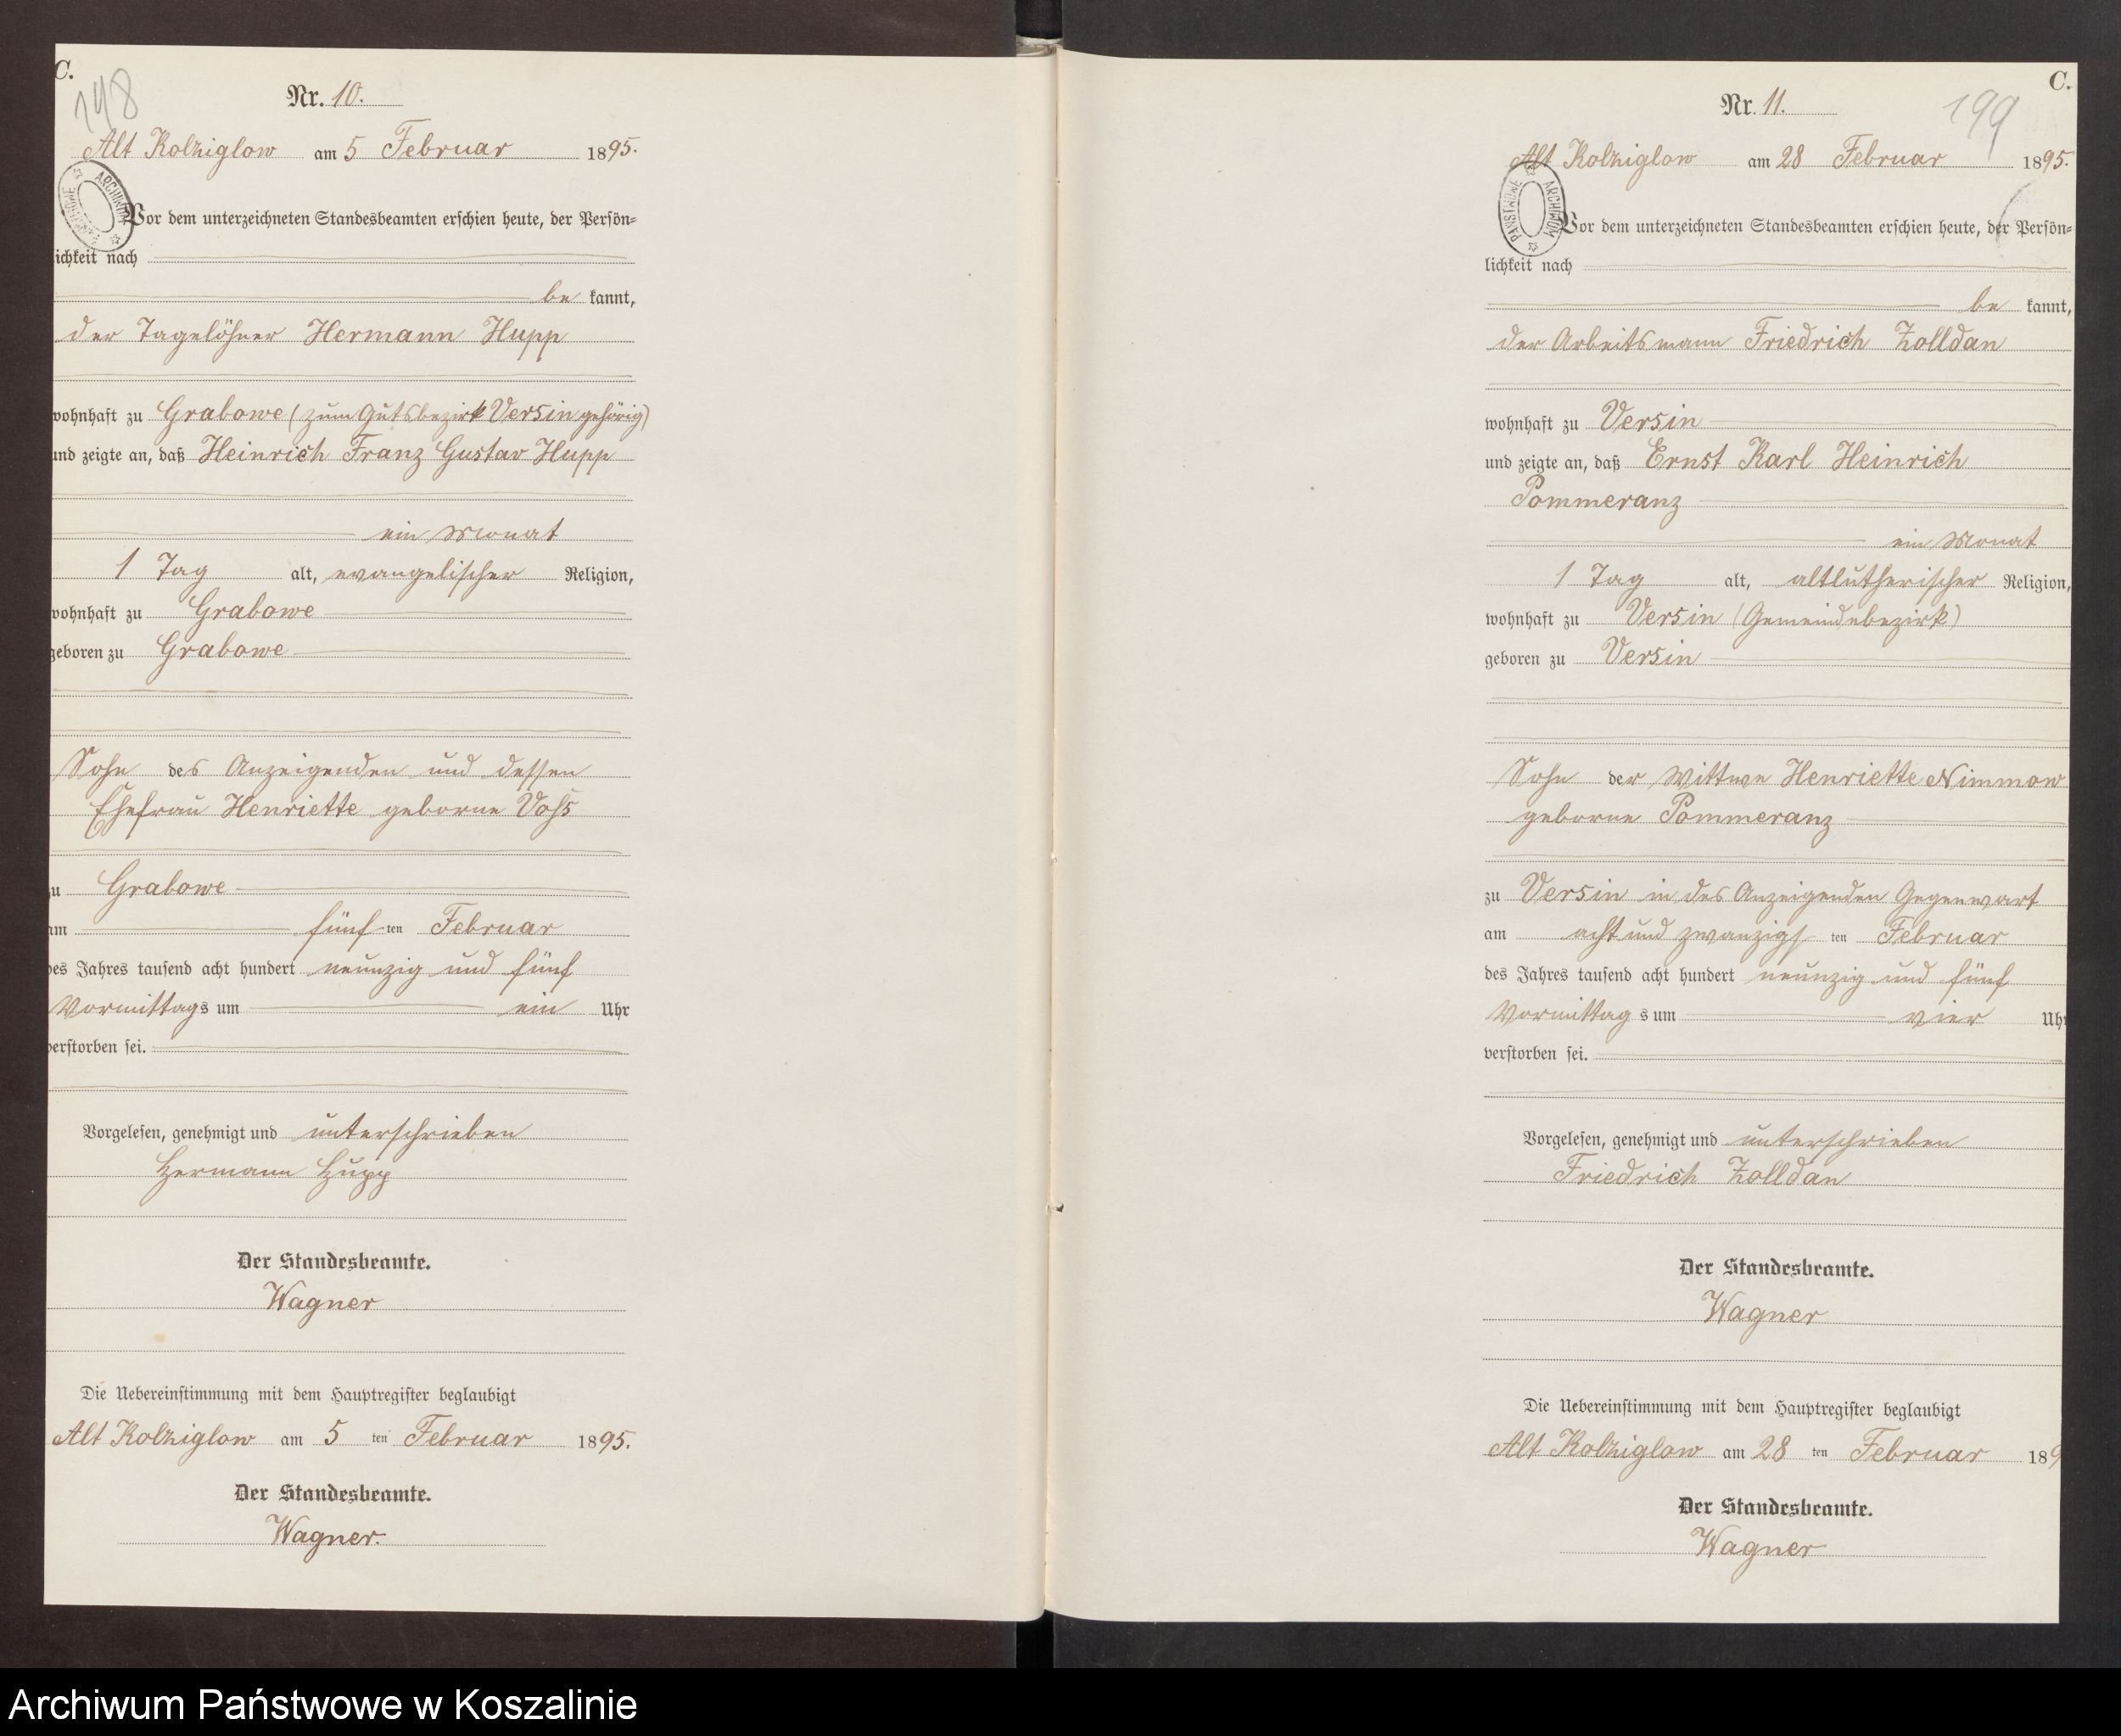 C.
198
Nr. 10.
Alt Kolziglow am 5 Februar 1895.
ARCHIWUM PAŃSTWOWE
Vor dem unterzeichneten Standesbeamten erschien heute, der Persön=
lichkeit nach
be kannt,
der Tagelöhner Hermann Hupp
wohnhaft zu Grabowe (zum Gutsbezirk Versin gehörig)
und zeigte an, daß Heinrich Franz Gustav Hupp
ein Monat
1 Tag alt, evangelischer Religion,
wohnhaft zu Grabowe
geboren zu Grabowe
Sohn des Anzeigenden und dessen
Ehefrau Henriette geborne Voß
zu Grabowe
am fünf ten Februar
des Jahres tausend acht hundert neunzig und fünf
Vormittags um ein Uhr
verstorben sei.
Vorgelesen, genehmigt und unterschrieben
Hermann Hupp
Der Standesbeamte.
Wagner
Die Uebereinstimmung mit dem Hauptregister beglaubigt
Alt Kolziglow am 5 ten Februar 1895.
Der Standesbeamte.
Wagner.
C.
199
Nr. 11.
Alt Kolziglow am 28 Februar 1895.
ARCHIWUM PAŃSTWOWE
Vor dem unterzeichneten Standesbeamten erschien heute, der Persön=
lichkeit nach
be kannt,
der Arbeitsmann Friedrich Zolldan
wohnhaft zu Versin
und zeigte an, daß Ernst Karl Heinrich
Pommeranz
ein Monat
1 Tag alt, altlutherischer Religion,
wohnhaft zu Versin (Gemeindebezirk)
geboren zu Versin
Sohn der Wittwe Henriette Nimmow
geborne Pommeranz
zu Versin in des Anzeigenden Gegenwart
am acht und zwanzigs ten Februar
des Jahres tausend acht hundert neunzig und fünf
Vormittag s um vier Uhr
verstorben sei.
Vorgelesen, genehmigt und unterschrieben
Friedrich Zolldan
Der Standesbeamte.
Wagner
Die Uebereinstimmung mit dem Hauptregister beglaubigt
Alt Kolziglow am 28 ten Februar 189
Der Standesbeamte.
Wagner
Archiwum Państwowe w Koszalinie